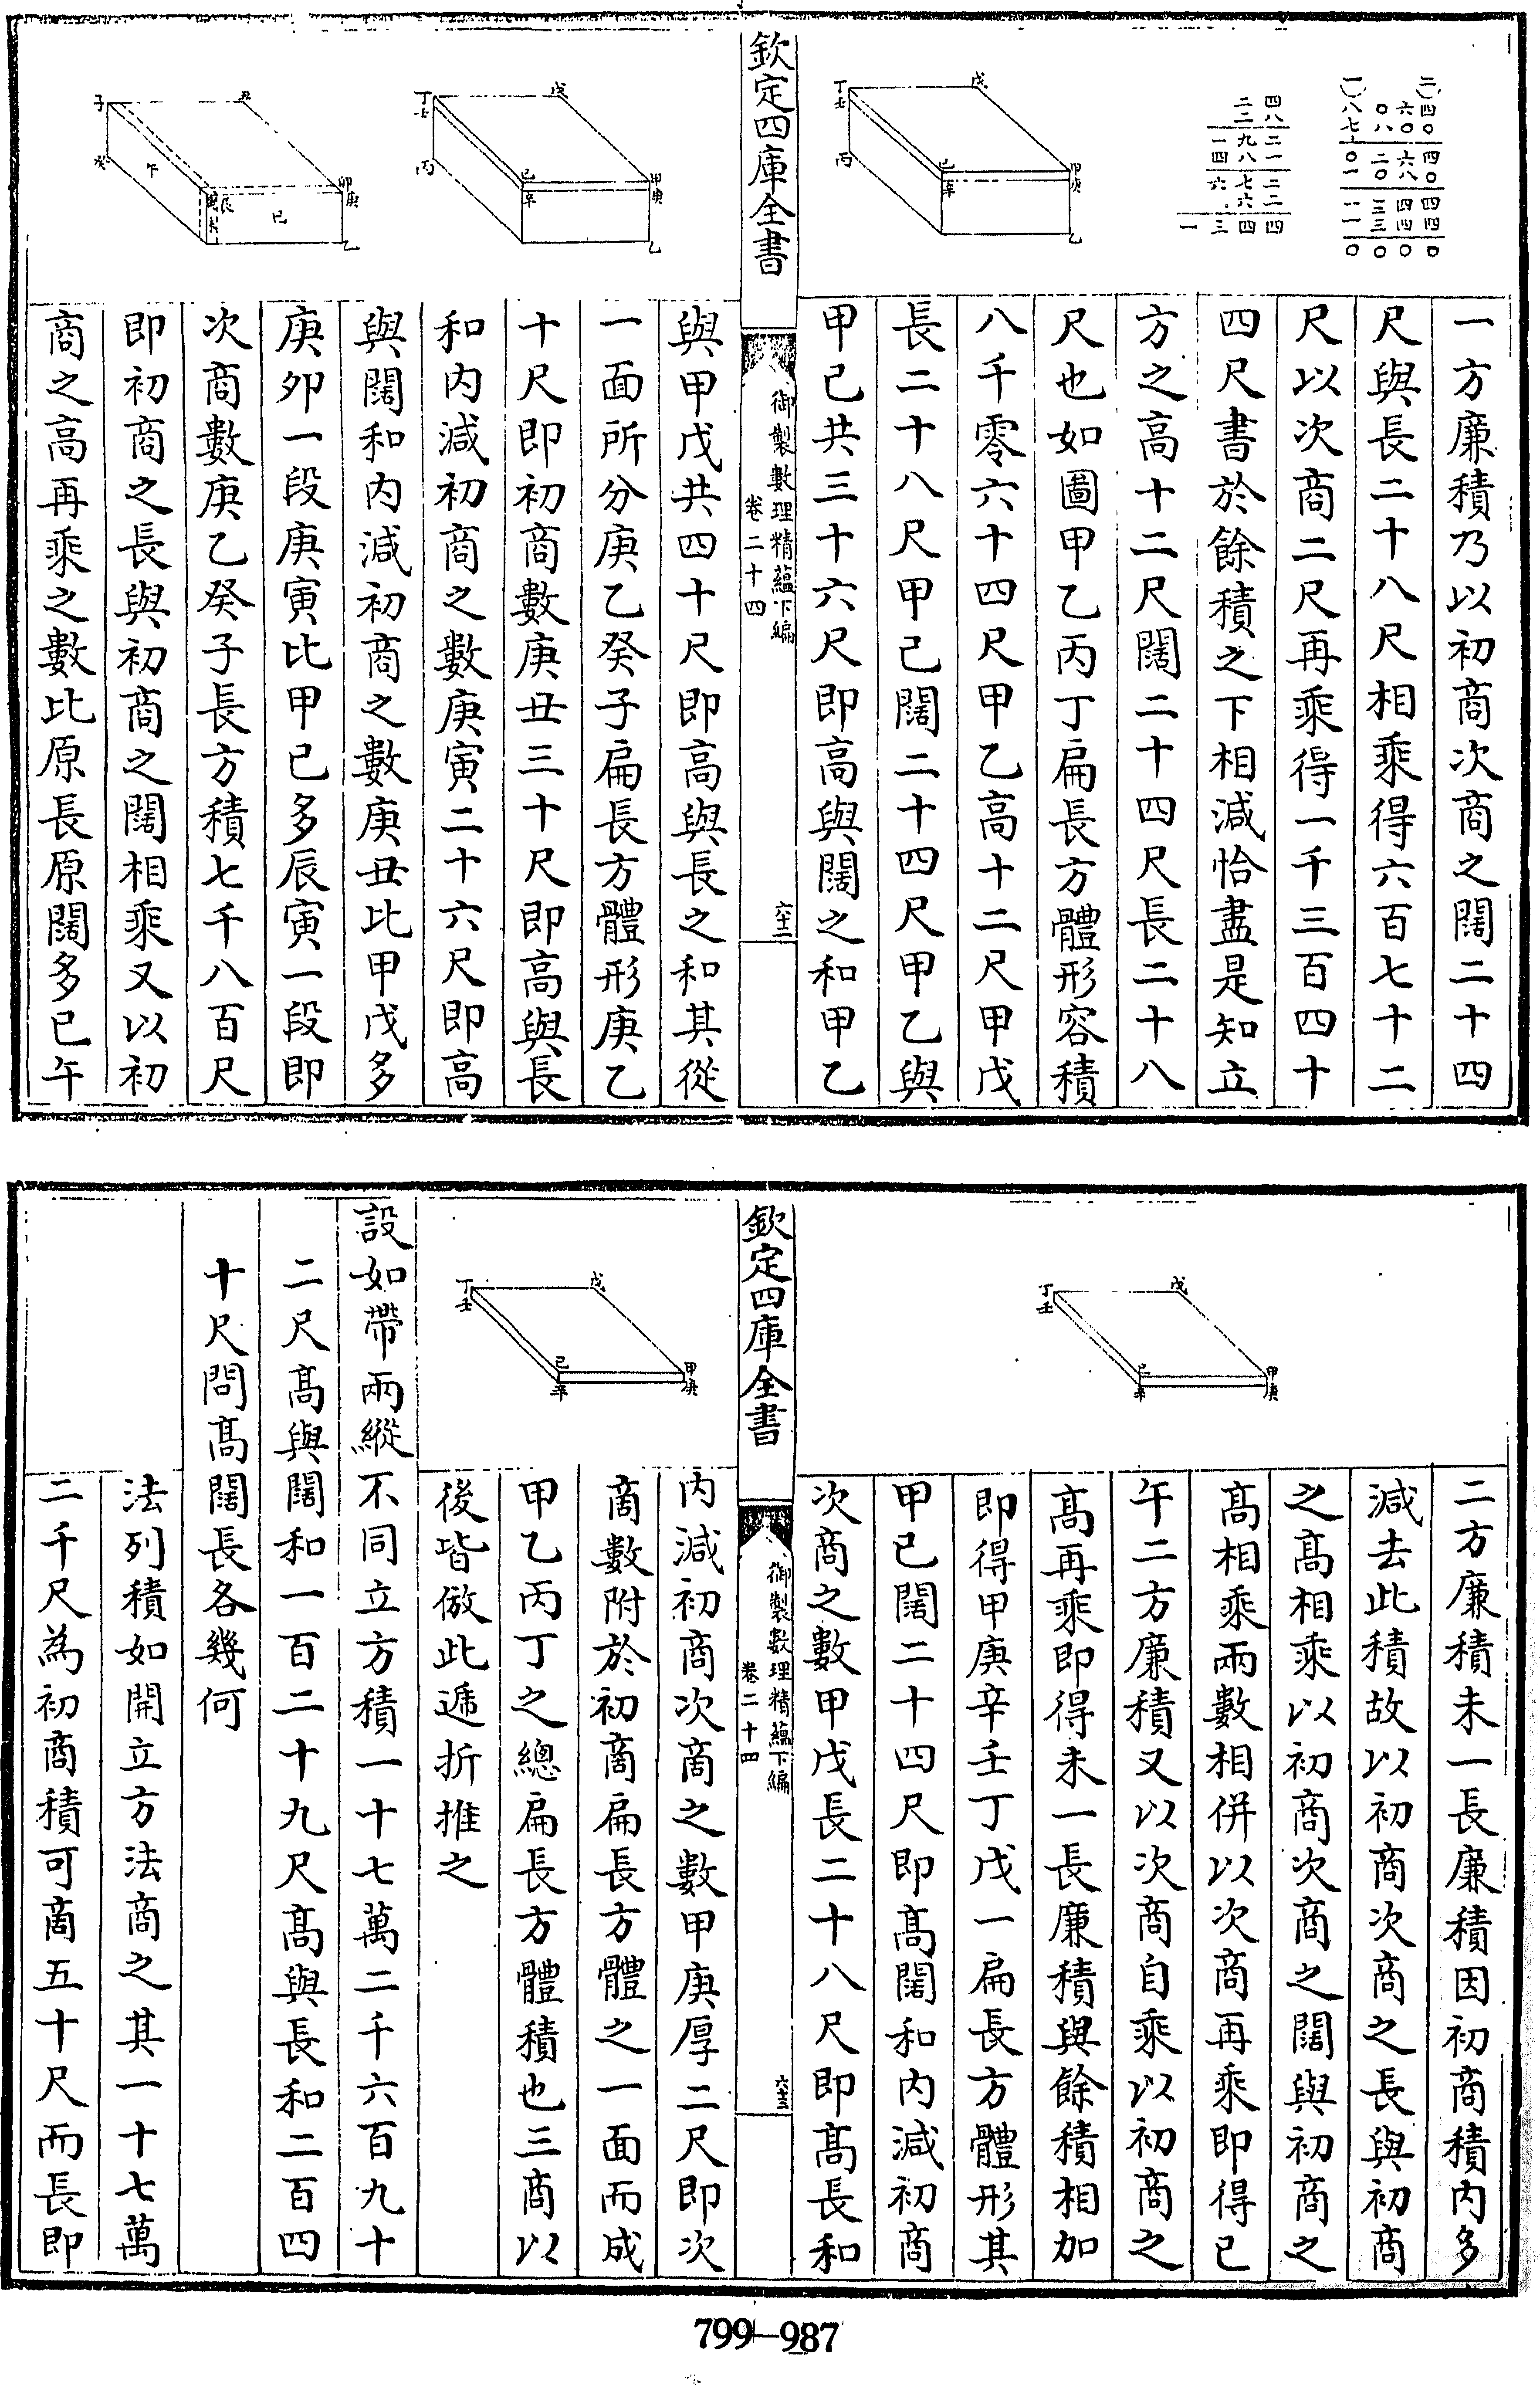 戊
丁
壬
丙
己
辛
甲
庚
乙
一方廉積乃以初商次商之闊二十四
尺與長二十八尺相乘得六百七十二
尺以次商二尺再乘得一千三百四十
四尺書於餘積之下相減恰盡是知立
方之高十二尺闊二十四尺長二十八
尺也如圖甲乙丙丁扁長方體形容積
八千零六十四尺甲乙高十二尺甲戊
長二十八尺甲己闊二十四尺甲乙與
甲己共三十六尺即高與闊之和甲乙
欽定四庫全書
御製數理精蘊下編
卷二十四
六十二
戊
丁
壬
丙
己
辛
甲
庚
乙
丑
子
癸
午
卯
庚
辰
寅
未
巳
乙
與甲戊共四十尺即高與長之和其從
一面所分庚乙癸子扁長方體形庚乙
十尺即初商數庚丑三十尺即高與長
和內減初商之數庚寅二十六尺即高
與闊和內減初商之數庚丑比甲戊多
庚卯一段庚寅比甲己多辰寅一段即
次商數庚乙癸子長方積七千八百尺
即初商之長與初商之闊相乘又以初
商之高再乘之數比原長原闊多巳午
戊
丁
壬
己
辛
甲
庚
二方廉積未一長廉積因初商積內多
減去此積故以初商次商之長與初商
之高相乘以初商次商之闊與初商之
高相乘兩數相併以次商再乘即得巳
午二方廉積又以次商自乘以初商之
高再乘即得未一長廉積與餘積相加
即得甲庚辛壬丁戊一扁長方體形其
甲己闊二十四尺即高闊和內減初商
次商之數甲戊長二十八尺即高長和
欽定四庫全書
御製數理精蘊下編
卷二十四
六十三
戊
丁
壬
己
辛
甲
庚
內減初商次商之數甲庚厚二尺即次
商數附於初商扁長方體之一面而成
甲乙丙丁之總扁長方體積也三商以
後皆倣此遞折推之
設如帶兩縱不同立方積一十七萬二千六百九十
二尺高與闊和一百二十九尺高與長和二百四
十尺問高闊長各幾何
法列積如開立方法商之其一十七萬
二千尺為初商積可商五十尺而長即
799-987